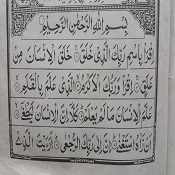 بِسْمِ اللهِ الرَّحْمٰنِ الرَّحِيْمِ
اِقْرَاْ بِاسْمِ رَبِّكَ الَّذِىْ خَلَقَ خَلَقَ الْاِنْسَانَ مِنْ
عَلَقٍ اِقْرَاْ وَرَبُّكَ الْاَكْرَمُ الَّذِىْ عَلَّمَ بِالْقَلَمِ
عَلَّمَ الْاِنْسَانَ مَا لَمْ يَعْلَمْ كَلَّا اِنَّ الْاِنْسَانَ لَيَطْغٰى
اَنْ رَّاٰهُ اسْتَغْنٰى اِنَّ اِلٰى رَبِّكَ الرُّجْعٰى اَرَءَيْتَ الَّذِىْ